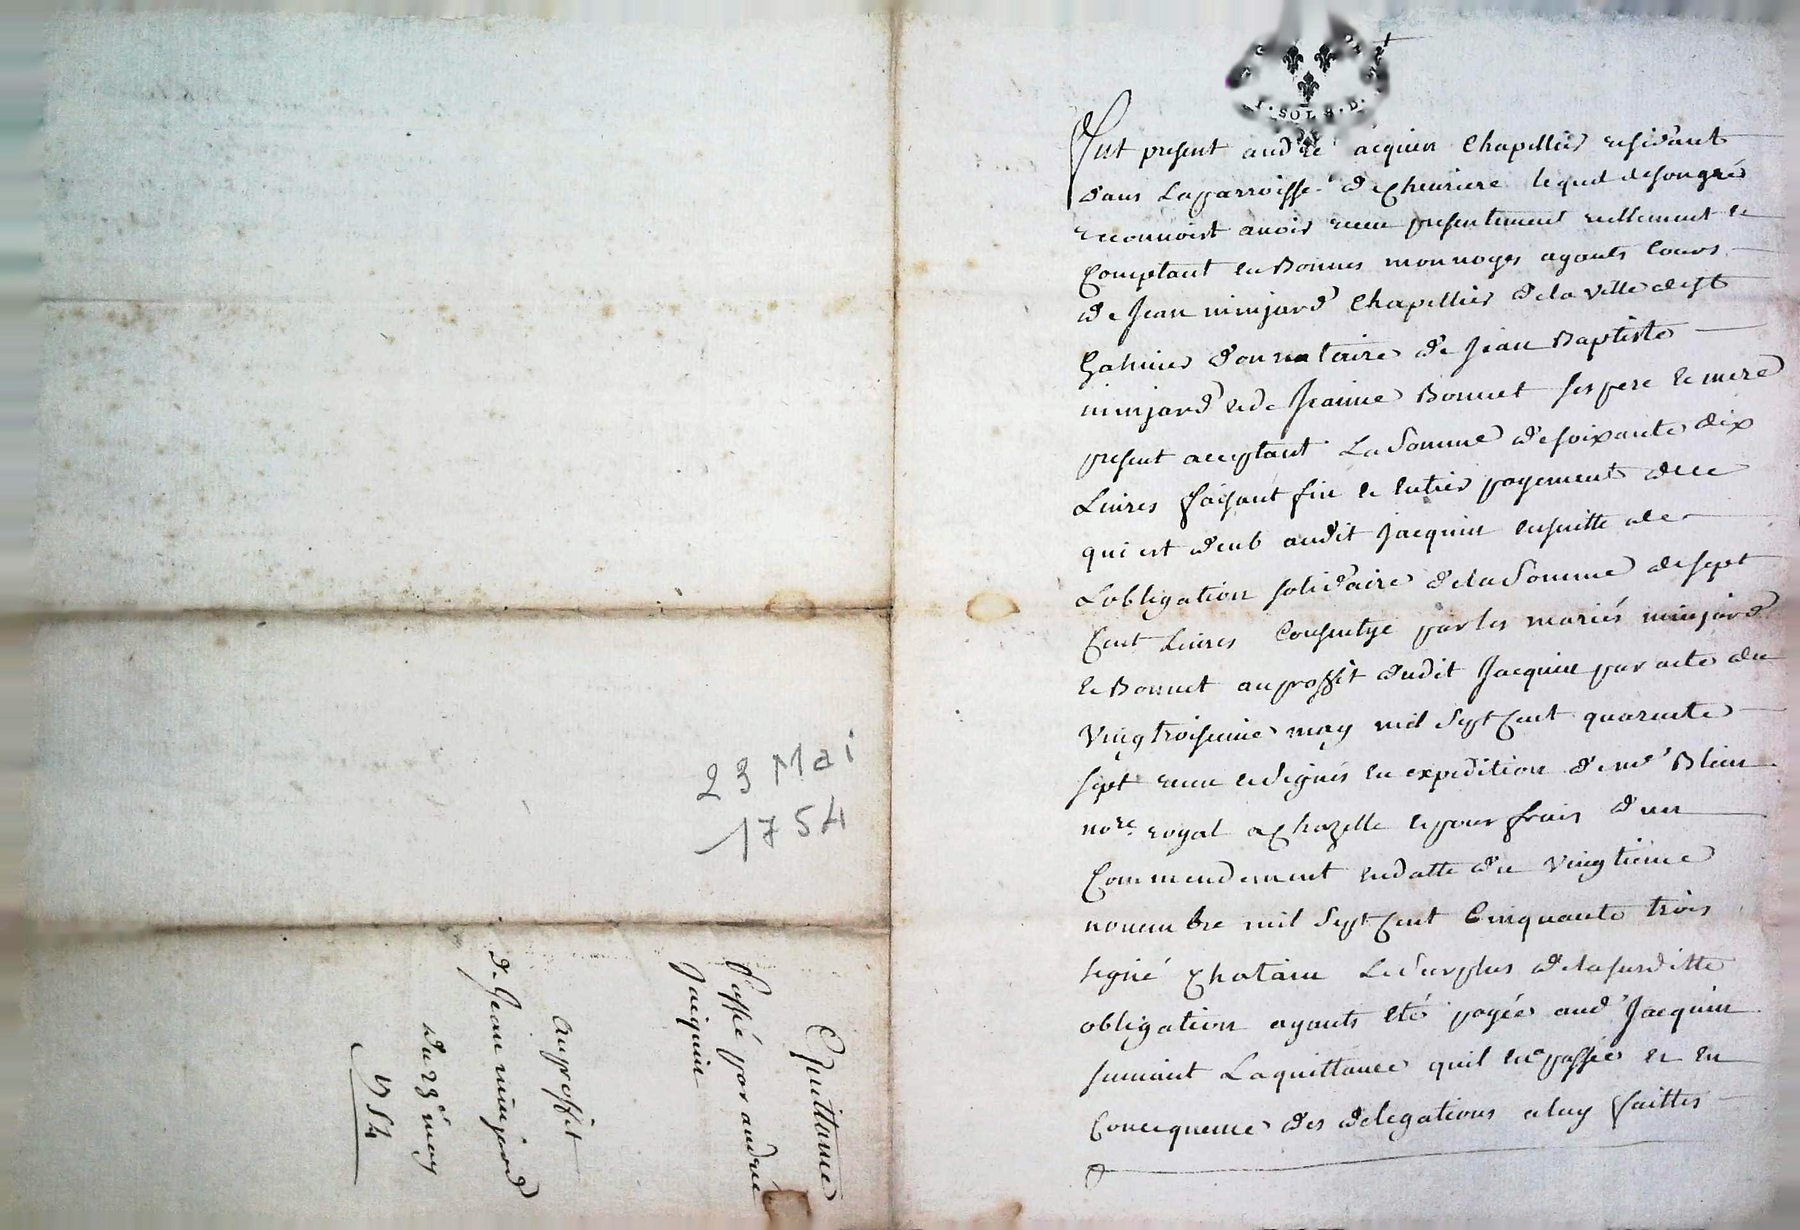 23 Mai
1754
Quittance
Passé par andré
Jacquin
au proffit
de Jean minjard
du 23e may
1754
SOLS. D.
Fut present andre acquin Chapellier residant
dans La parroisse de Chevriere lequel de son gré
reconnoist avoir receu presentement reellement et
Comptant en Bonnes monnoyes ayants Cours
de Jean minjard Chapellier de la ville de st
Galmier donnataire de Jean Baptiste
minjard et de Jeanne Bonnet ses pere et mere
present acceptant La Somme de soixante dix
Livres faisant fin et entier payement de ce
qui est deub audit Jacquin ensuitte de
Lobligation solidaire de la Somme de sept
Cent Livres Consentye par les mariés minjard
et Bonnet au proffit dudit Jacquin par acte du
Vingtroisieme may mil Sept Cent quarente
sept receu et signé en expedition de me Blein
nore royal a Chazelle et pour frais d'un
Commendement en datte du vingtieme
novembre mil Sept Cent Cinquante trois
signé Chatain Le Surplus de la susditte
obligation ayants eté payée aud Jacquin
suivant La quittance quil en a passée et en
Concequence des delegations a luy faittes